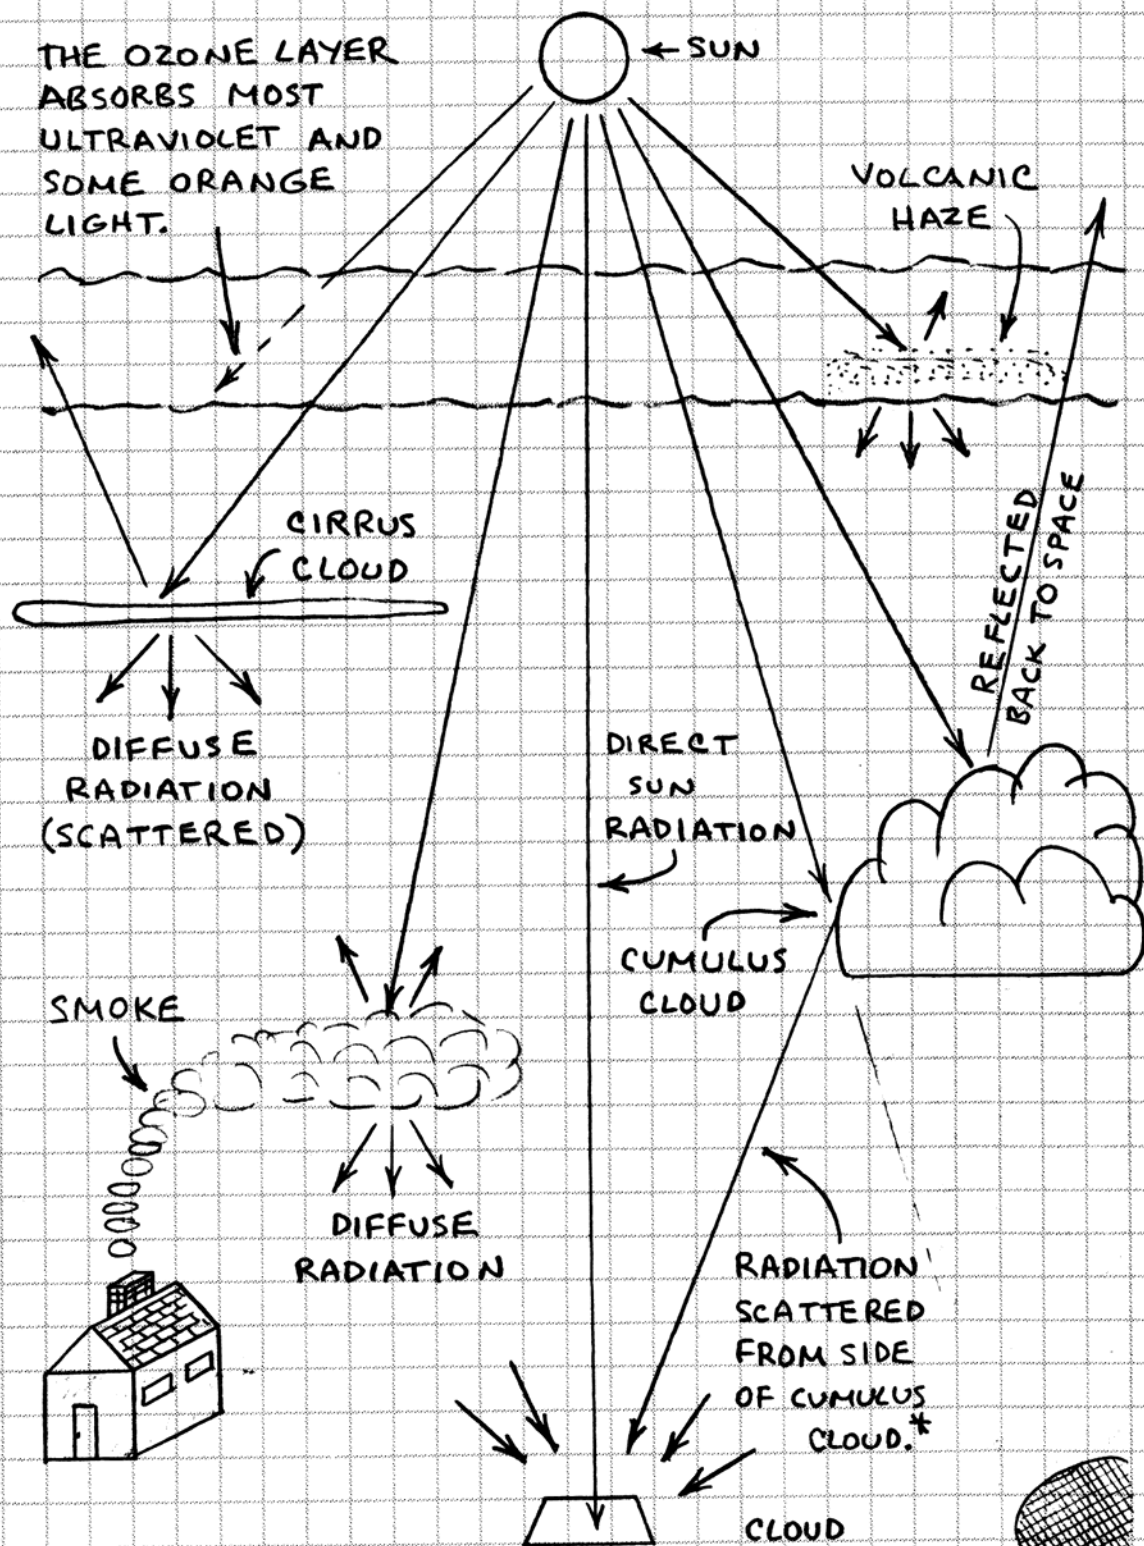 THE OZONE LAYER
ABSORBS MOST
ULTRAVIOLET AND
SOME ORANGE
LIGHT.
SUN
VOLCANIC
HAZE
CIRRUS
CLOUD
REFLECTED
BACK TO SPACE
DIFFUSE
RADIATION
(SCATTERED)
DIRECT
SUN
RADIATION
CUMULUS
CLOUD
SMOKE
DIFFUSE
RADIATION
RADIATION
SCATTERED
FROM SIDE
OF CUMULUS
CLOUD.*
CLOUD